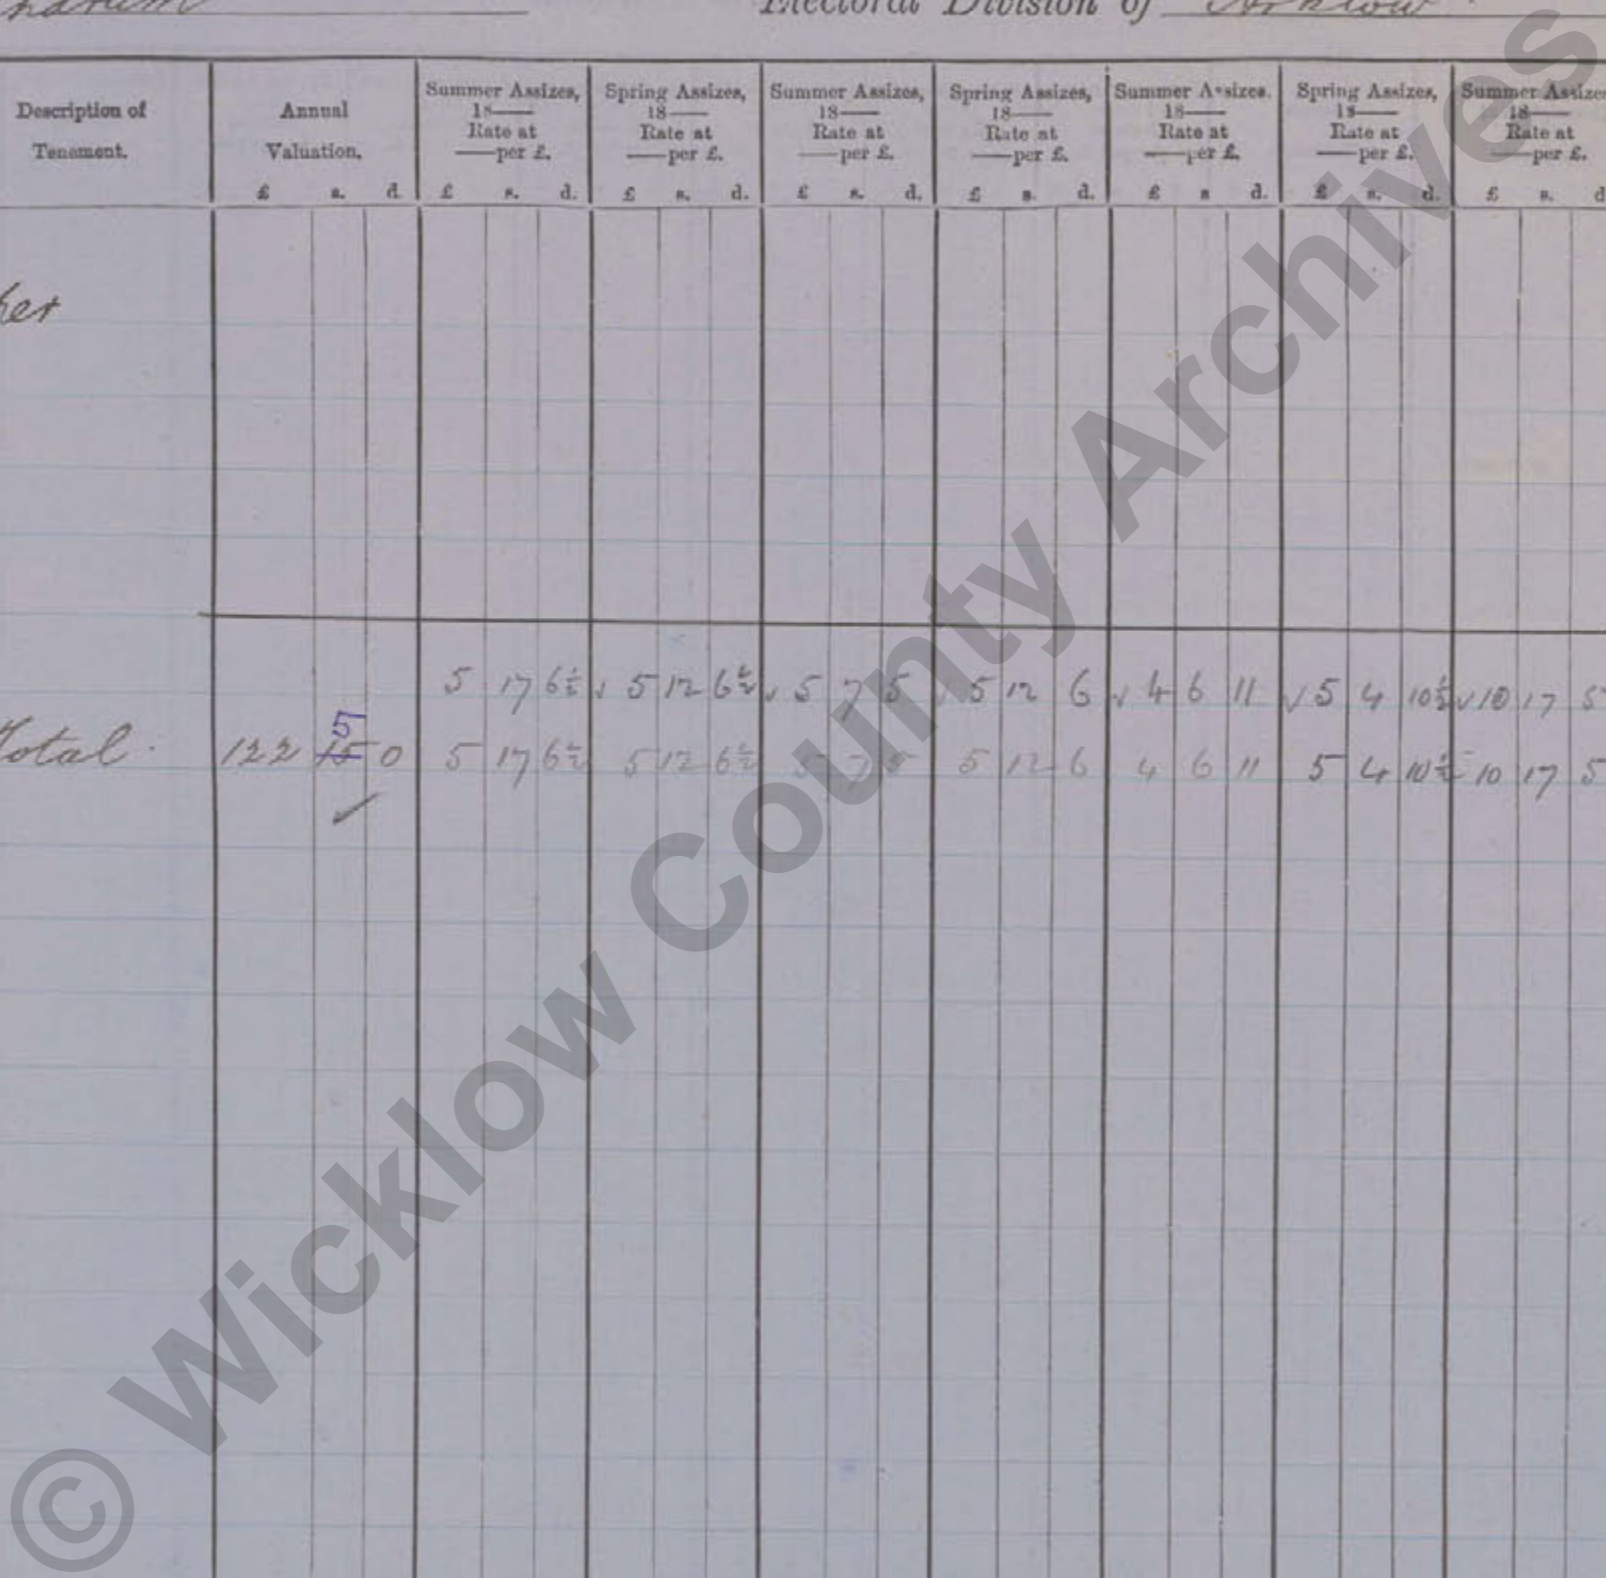 Electoral Division of Arklow
Description of Tenement.
Annual Valuation,
£ s. d.
Summer Assizes, 18—— Rate at ——per £.
£ s. d.
Spring Assizes, 18—— Rate at ——per £.
£ s. d.
Summer Assizes, 18—— Rate at ——per £.
£ s. d.
Spring Assizes, 18—— Rate at ——per £.
£ s. d.
Summer Assizes. 18—— Rate at ——per £.
£ s d.
Spring Assizes, 18—— Rate at ——per £.
£ s. d.
Summer Assizes 18—— Rate at ——per £.
£ s. d
5 17 6½ √ 5 12 6½ √ 5 7 5 √ 5 12 6 √ 4 6 11 √ 5 4 10½ √ 10 17 5
5
Total. 122 15 0 5 17 6½ 5 12 6½ 5 7 5 5 12 6 4 6 11 5 4 10½ 10 17 5
✓
© Wicklow County Archives